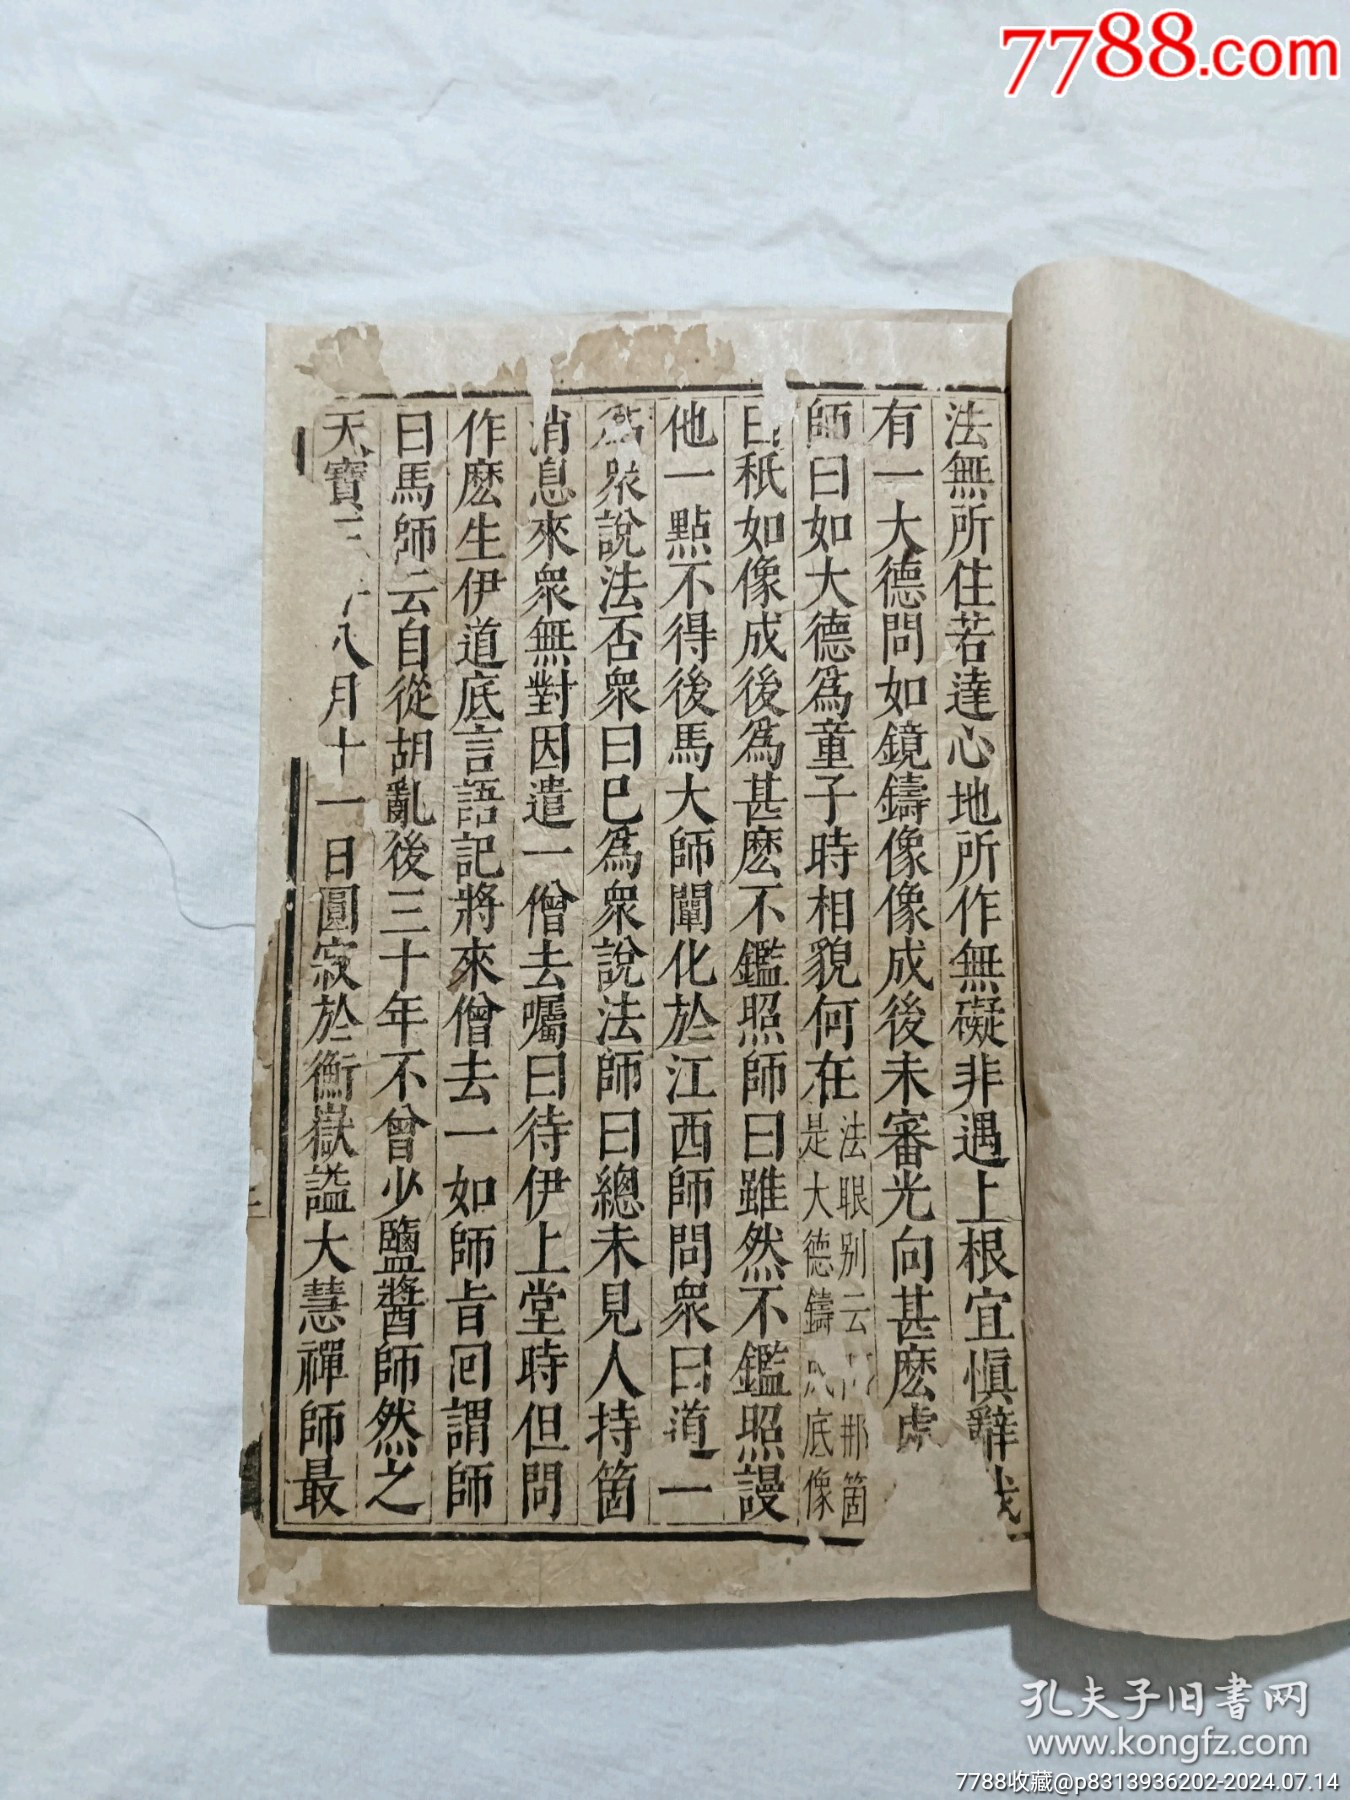 7788.com
法無所住若達心地所作無礙非遇上根宜慎辭哉
有一大德問如鏡鑄像像成後未審光向甚麽處
師曰如大德爲童子時相貌何在
法眼别云 那箇
是大德鑄成底像
曰秖如像成後爲甚麽不鑑照師曰雖然不鑑照謾
他一點不得後馬大師闡化於江西師問衆曰道一
爲衆說法否衆曰已爲衆說法師曰總未見人持箇
消息來衆無對因遣一僧去囑曰待伊上堂時但問
作麽生伊道底言語記將來僧去一如師旨回謂師
曰馬師云自從胡亂後三十年不曾少鹽醬師然之
天寶三 八月十一日圓寂於衡嶽謚大慧禪師最
孔夫子旧書网
www.kongfz.com
7788收藏@p8313936202-2024.07.14